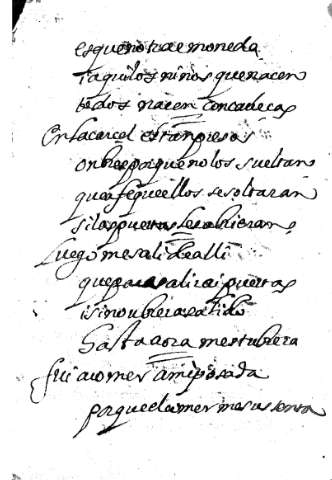 es que no trae moneda
i aqui los niños que nacen
todos nacen con cabeças
En la carcel estan presos
onbres porque no los sueltan
que a fe que ellos se soltaran
si las puertas les abieran
Luego me sali de alli
que para salir ai puertas
i si no ubiera salido
hasta aora me estubiera
fui a comer a mi posada
porque el comer me